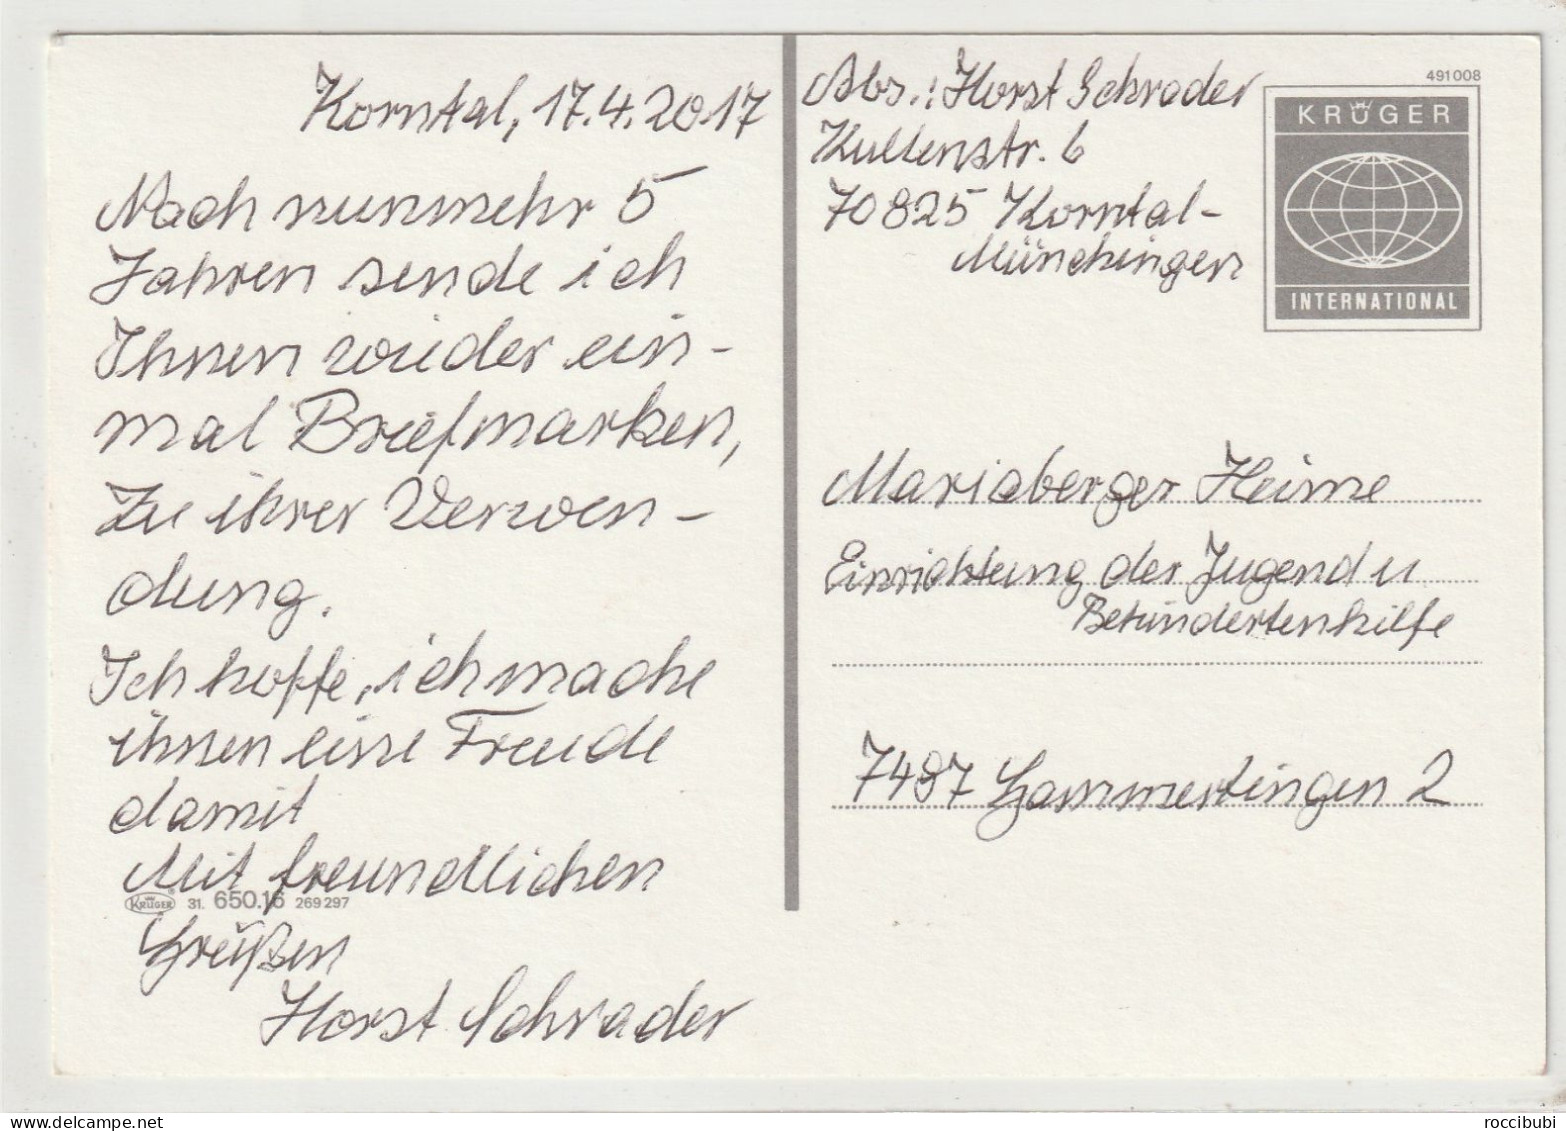 Korntal, 17.4.2017
Nach nunmehr 5
Jahren sende ich
Ihnen wieder ein-
mal Briefmarken,
Zu ihrer Verwen-
dung.
Ich hoffe, ich mache
ihnen eine Freude
damit
Mit freundlichen
KRÜGER® 31. 650.16 269 297
Grüßen
Horst Schrader
Abs.: Horst Schrader
Kullenstr. 6
70825 Korntal-
Münchingen
491008
KRÜGER
INTERNATIONAL
Mariaberger Heime
Einrichtung der Jugend u
Behindertenhilfe
7487 Gammertingen 2
roccibubi